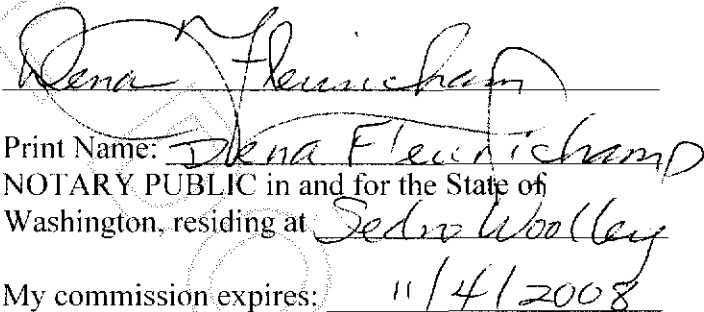 Dena Fleurichamp
Print Name: Dena Fleurichamp
NOTARY PUBLIC in and for the State of
Washington, residing at Sedro Woolley
My commission expires: 11/4/2008